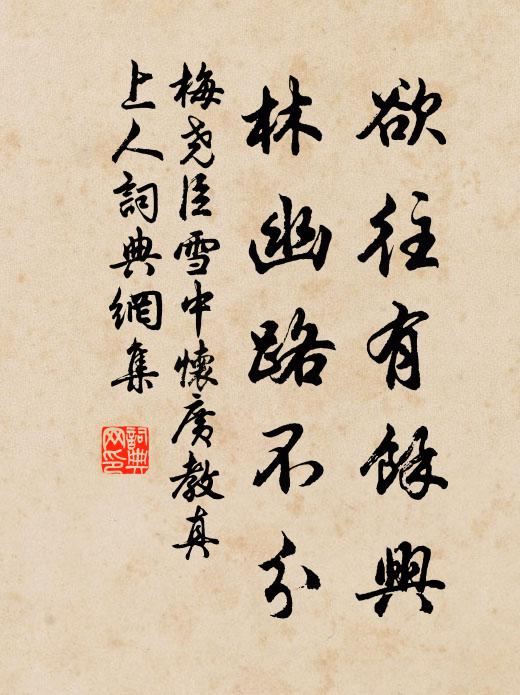 欲往有餘興
林幽路不分
梅堯臣雪中懷廣教真
上人詞典網集
詞典
网印